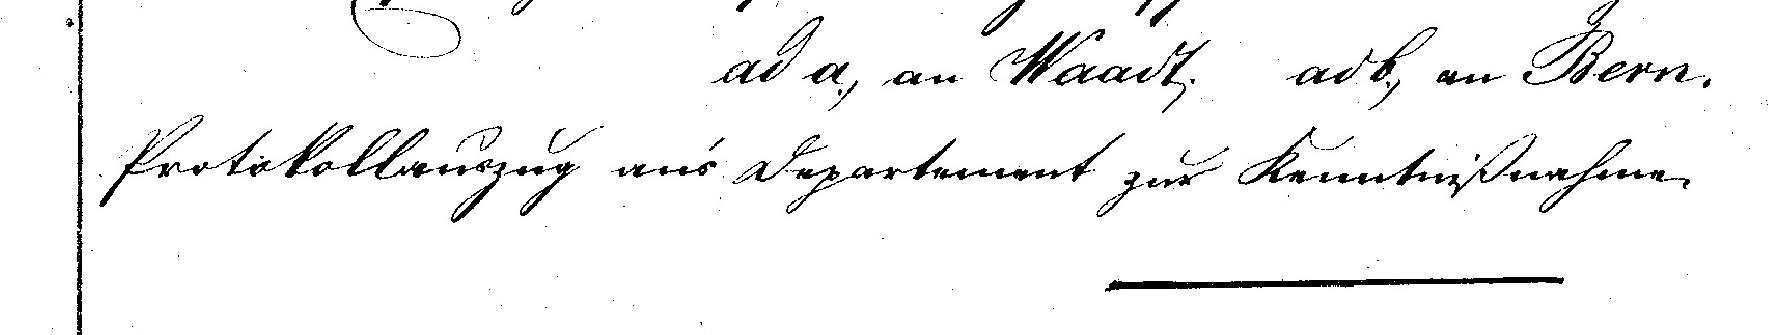 ad a., an Waadt. ad b., an Bern.
Protokollauszug an's Departement zur Kenntnißnahme.